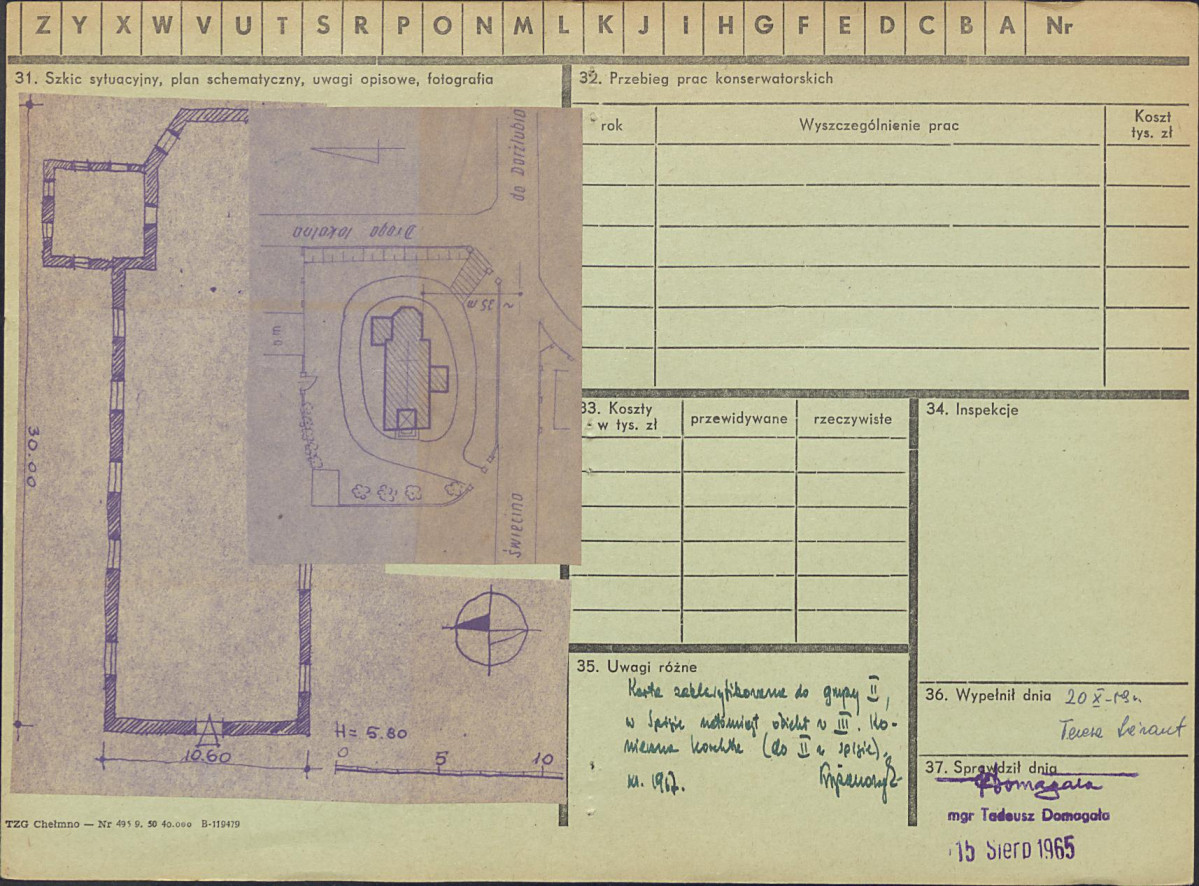 Z Y X W V U T S R P O N M L K J I H G F E D C B A Nr
31. Szkic sytuacyjny, plan schematyczny, uwagi opisowe, fotografia
do Darżlubia
Droga lokalna
~ 35 m
om
Święcino
30.00
10.60
H = 5.80
0 5 10
TZG Chełmno — Nr 495 9. 50 40.000 B-119479
32. Przebieg prac konserwatorskich
rok
Wyszczególnienie prac
Koszt
tys. zł
33. Koszty
w tys. zł
przewidywane
rzeczywiste
34. Inspekcje
35. Uwagi różne
Karta zaklasyfikowana do grupy II,
w spisie natomiast obiekt w III. Ko-
nieczna korekta (do II w spisie).
XI. 1967.
36. Wypełnił dnia
Teresa
37. Sprawdził dnia
Domagała
mgr Tadeusz Domagała
15 Sierp 1965